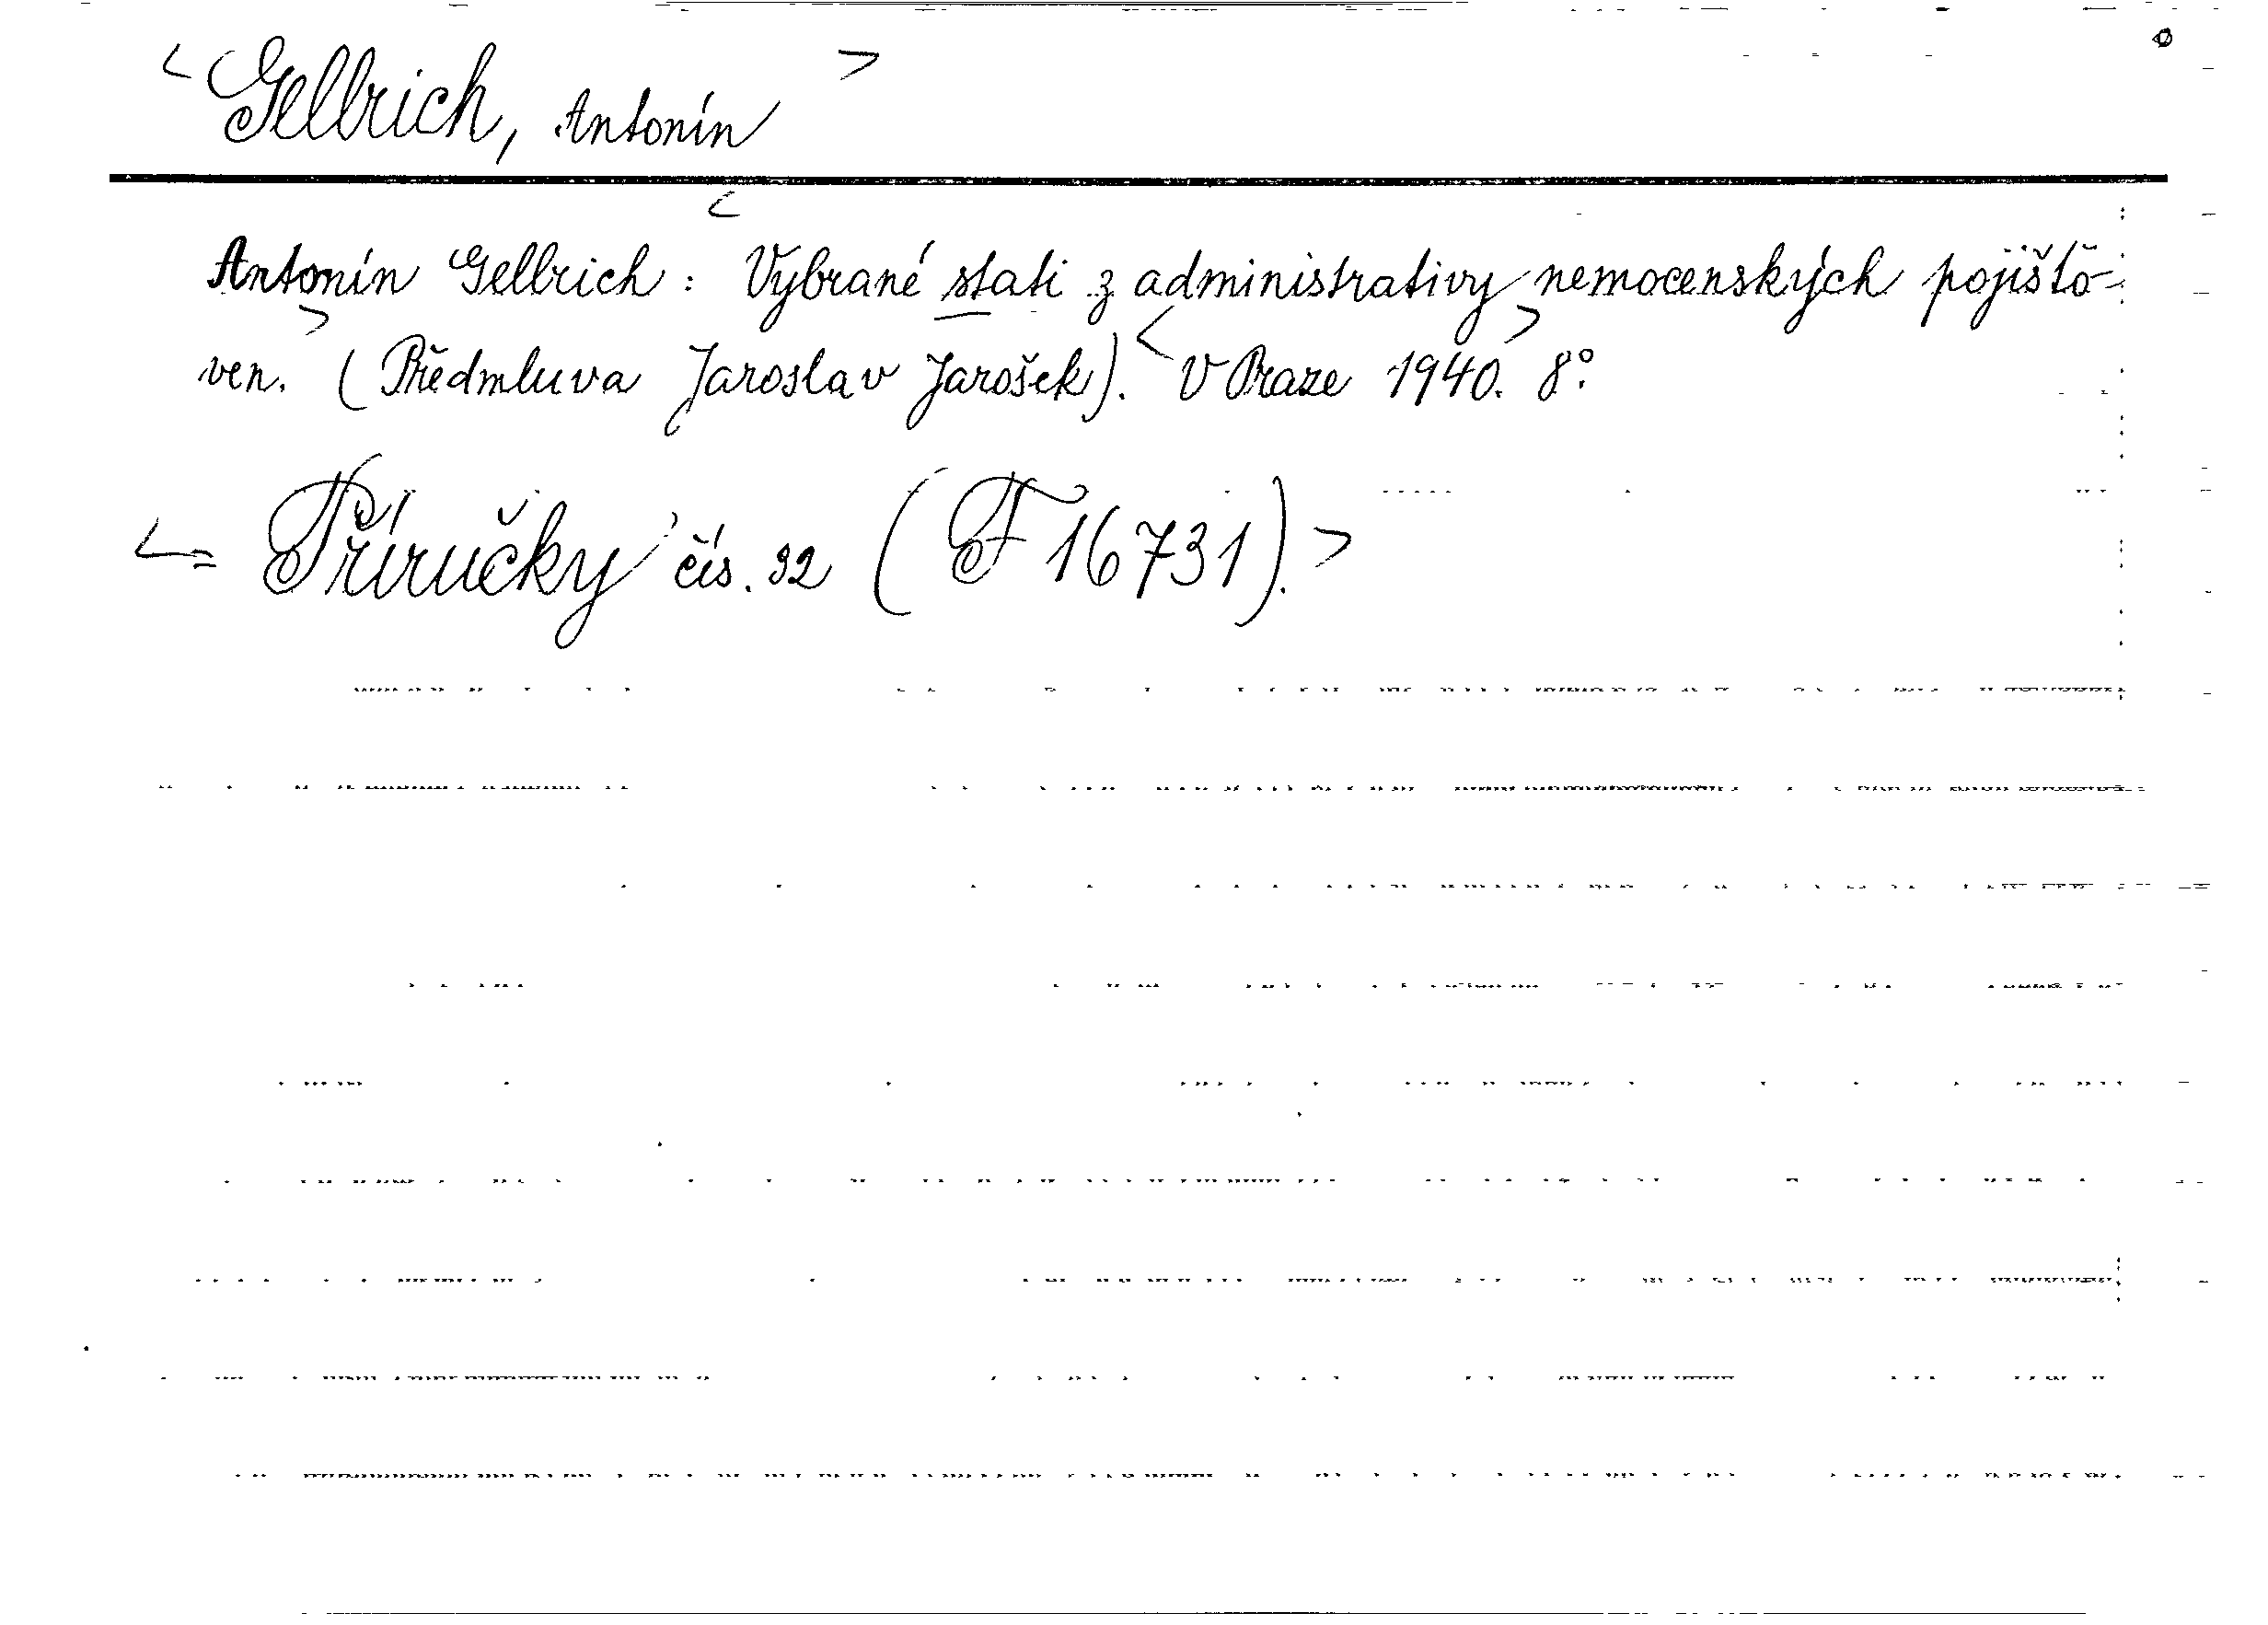 < Gellrich, Antonín >
Antonín Gellrich: < Vybrané stati z administrativy nemocenských pojišťo-
ven. > (Předmluva Jaroslav Jarošek). < V Praze 1940. > 8°.
< = Příručky čís. 32 (F 16731). >